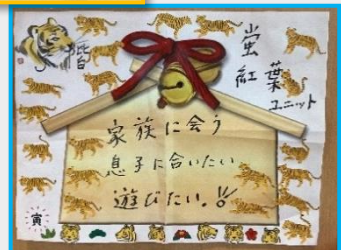 蛍
紅葉
ユニット
家族に会う
息子に合いたい
遊びたい。!!
寅